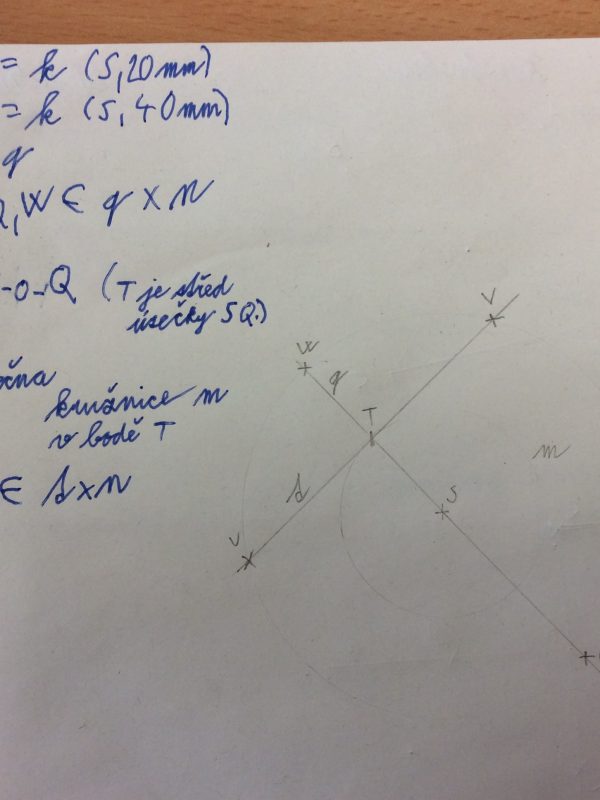 = k (S, 20 mm)
= k (S, 40 mm)
q
Q, W ∈ q × n
-o- Q (T je střed
úsečky SQ.)
kružnice m
v bodě T
∈ s × n
V
W
q
T
m
s
S
U